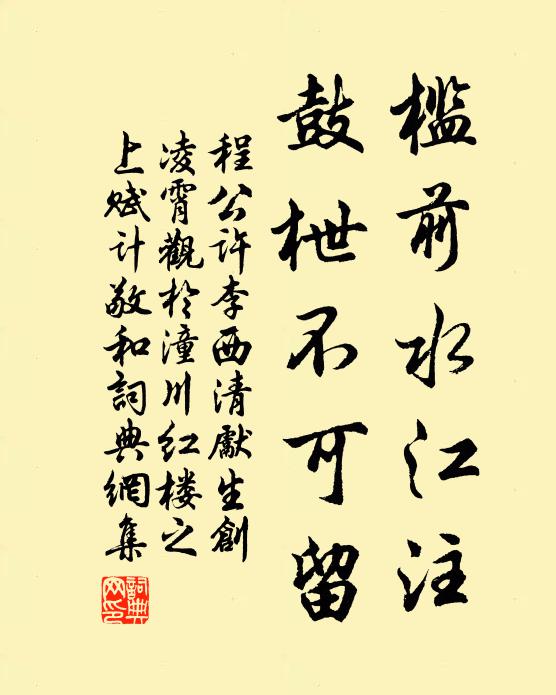 檻前水江注
鼓枻不可留
程公許李西清獻生創
凌霄觀於潼川紅楼之
上赋计敬和詞典網集